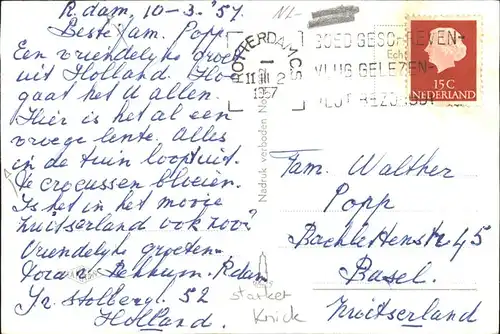 R.dam, 10-3-'57
Beste fam. Popp
Een vriendelijke groet
uit Holland. Hoe
gaat het U allen.
Hier is het al een
vroege lente. Alles
in de tuin loopt uit.
De crocussen bloeien.
Is het in het mooie
Zwitserland ook zoo?
Vriendelijke groeten
Dora v. Bekkum. R.dam
Jr. Stolberg. 52
Holland.
NL-
ROTTERDAM C.S
II III 2
1957
GOED GESCHREVEN-
Echt
VLUG GELEZEN-
VLUG BEZORGD!
15C
NEDERLAND
Nadruk verboden
Fam. Walther
Popp
Bachlettenstr 45
Basel.
Zwitserland
starker
Knick